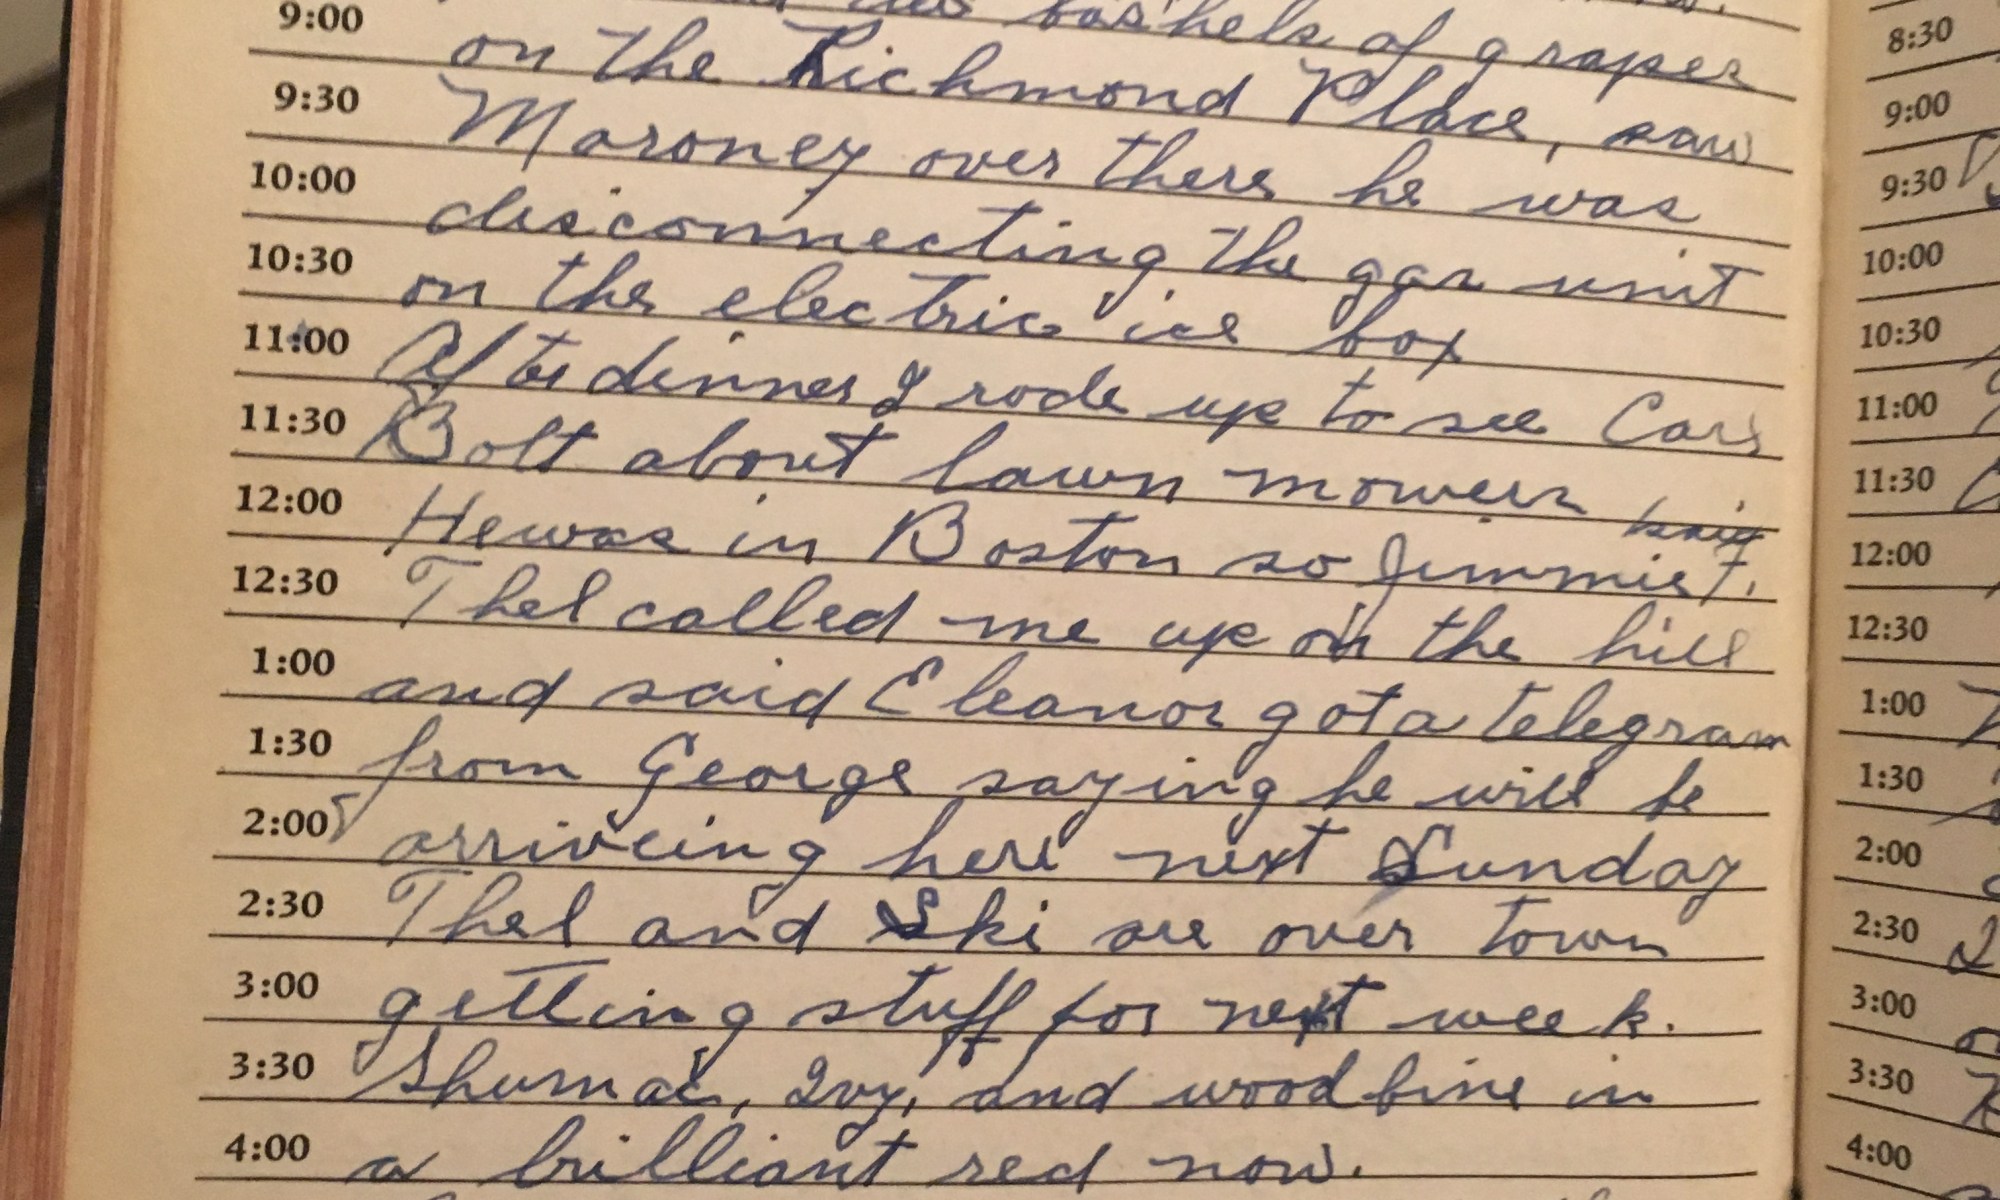 bushels of grapes
9:00 on the Richmond Place, saw
9:30 Maroney over there he was
10:00 disconnecting the gas unit
10:30 on the electric ice box
11:00 After dinner I rode up to see Carl
11:30 Bolt about lawn mowers
12:00 He was in Boston so Jimmie T. said
12:30 Thel called me up on the hill
1:00 and said Eleanor got a telegram
1:30 from George saying he will be
2:00 arriveing here next Sunday
2:30 Thel and Ski are over town
3:00 getting stuff for next week.
3:30 Shumac, Ivy, and woodbine in
4:00 a brilliant red now.
8:30
9:00
9:30
10:00
10:30
11:00
11:30
12:00
12:30
1:00
1:30
2:00
2:30
3:00
3:30
4:00